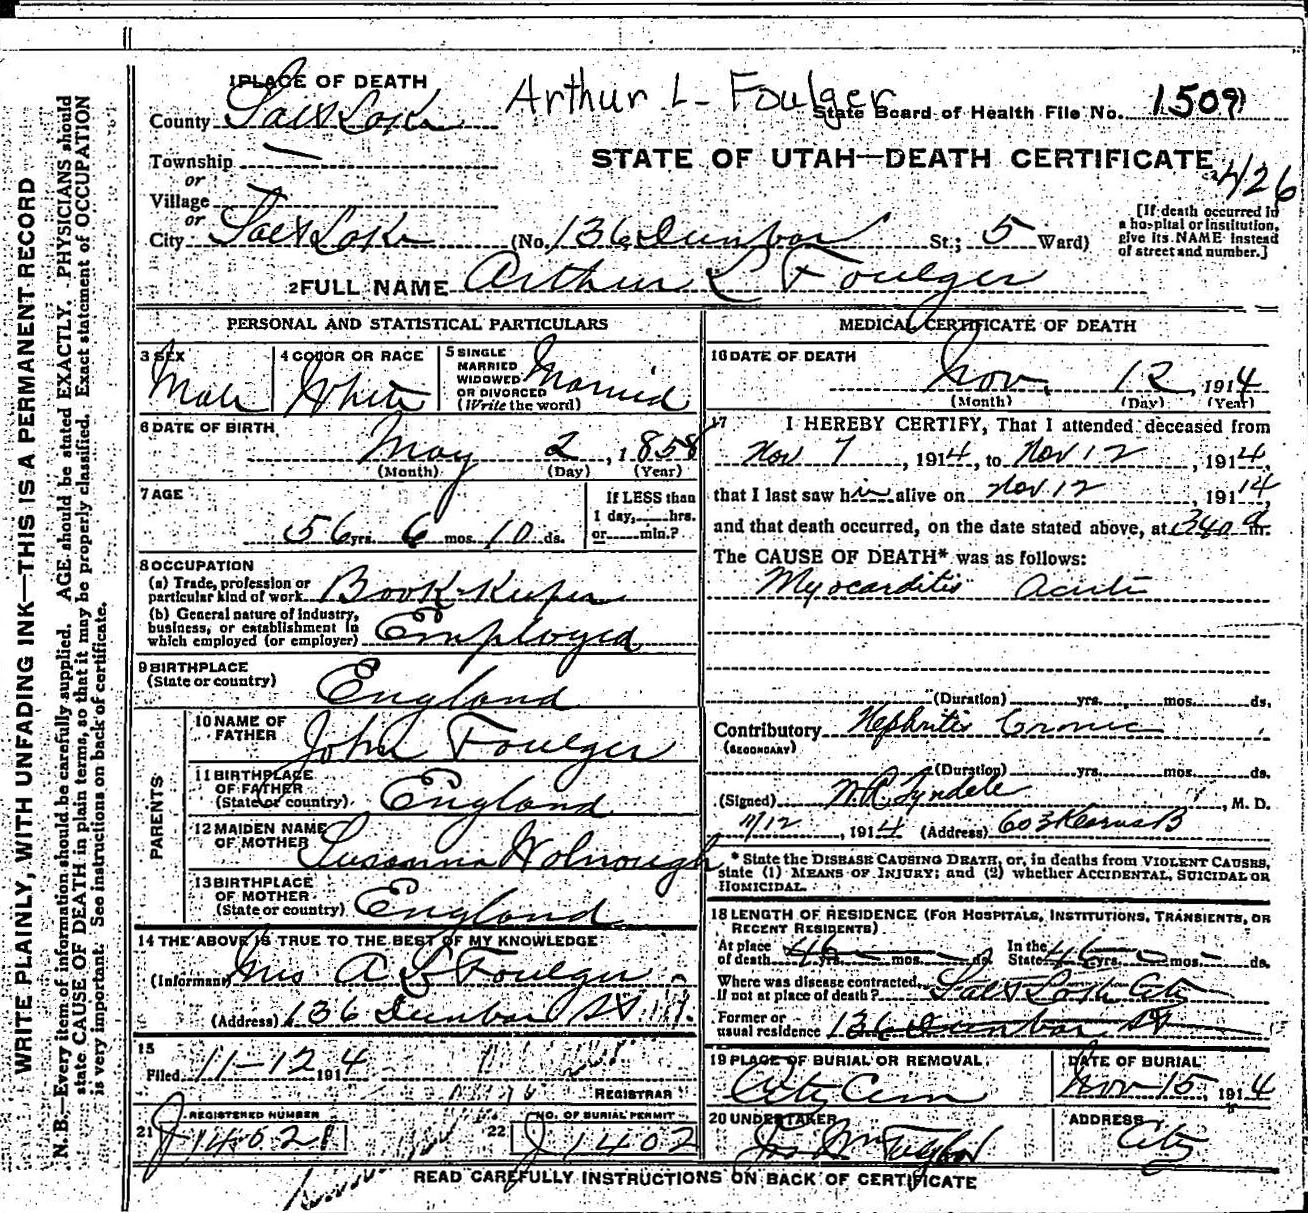 Arthur L. Foulger
1 PLACE OF DEATH
County Salt Lake
State Board of Health File No. 1509
Township —
or
STATE OF UTAH—DEATH CERTIFICATE
426
Village
or
City Salt Lake (No. 136 Dunbar St.; 5 Ward)
[If death occurred in a hospital or institution, give its NAME instead of street and number.]
2 FULL NAME Arthur L Foulger
PERSONAL AND STATISTICAL PARTICULARS
3 SEX Male
4 COLOR OR RACE White
5 SINGLE MARRIED WIDOWED OR DIVORCED (Write the word) Married
6 DATE OF BIRTH
May 2, 1858
(Month) (Day) (Year)
7 AGE
56 yrs. 6 mos. 10 ds.
If LESS than 1 day, hrs. or min.?
8 OCCUPATION
(a) Trade, profession or particular kind of work Book-Keeper
(b) General nature of industry, business, or establishment in which employed (or employer) Employed
9 BIRTHPLACE (State or country) England
PARENTS
10 NAME OF FATHER John Foulger
11 BIRTHPLACE OF FATHER (State or country) England
12 MAIDEN NAME OF MOTHER Susanna Wolnough
13 BIRTHPLACE OF MOTHER (State or country) England
14 THE ABOVE IS TRUE TO THE BEST OF MY KNOWLEDGE
(Informant) Mrs A L Foulger
(Address) 136 Dunbar St
15
Filed 11-12 1914
REGISTRAR
REGISTERED NUMBER
21 J 14021
NO. OF BURIAL PERMIT
22 J 1402
MEDICAL CERTIFICATE OF DEATH
16 DATE OF DEATH
Nov. 12, 1914
(Month) (Day) (Year)
17 I HEREBY CERTIFY, That I attended deceased from
Nov 7, 1914, to Nov 12, 1914,
that I last saw him alive on Nov 12, 1914,
and that death occurred, on the date stated above, at 340 a m.
The CAUSE OF DEATH* was as follows:
Myocarditis Acute
(Duration) yrs. mos. ds.
Contributory Nephritis Cronic
(SECONDARY)
(Duration) yrs. mos. ds.
(Signed) W R Tyndale, M. D.
11/12, 1914 (Address) 603 Kearns B
* State the DISEASE CAUSING DEATH, or, in deaths from VIOLENT CAUSES, state (1) MEANS OF INJURY; and (2) whether ACCIDENTAL, SUICIDAL OR HOMICIDAL.
18 LENGTH OF RESIDENCE (FOR HOSPITALS, INSTITUTIONS, TRANSIENTS, OR RECENT RESIDENTS)
At place of death 46 yrs. — mos. — ds. In the State 46 yrs. — mos. — ds.
Where was disease contracted, if not at place of death? Salt Lake City
Former or usual residence 136 Dunbar St
19 PLACE OF BURIAL OR REMOVAL City Cem
DATE OF BURIAL Nov 15, 1914
20 UNDERTAKER Jos Wm Taylor
ADDRESS City
READ CAREFULLY INSTRUCTIONS ON BACK OF CERTIFICATE
WRITE PLAINLY, WITH UNFADING INK—THIS IS A PERMANENT RECORD
N. B.—Every item of information should be carefully supplied. AGE should be stated EXACTLY. PHYSICIANS should
state CAUSE OF DEATH in plain terms, so that it may be properly classified. Exact statement of OCCUPATION
is very important. See instructions on back of certificate.